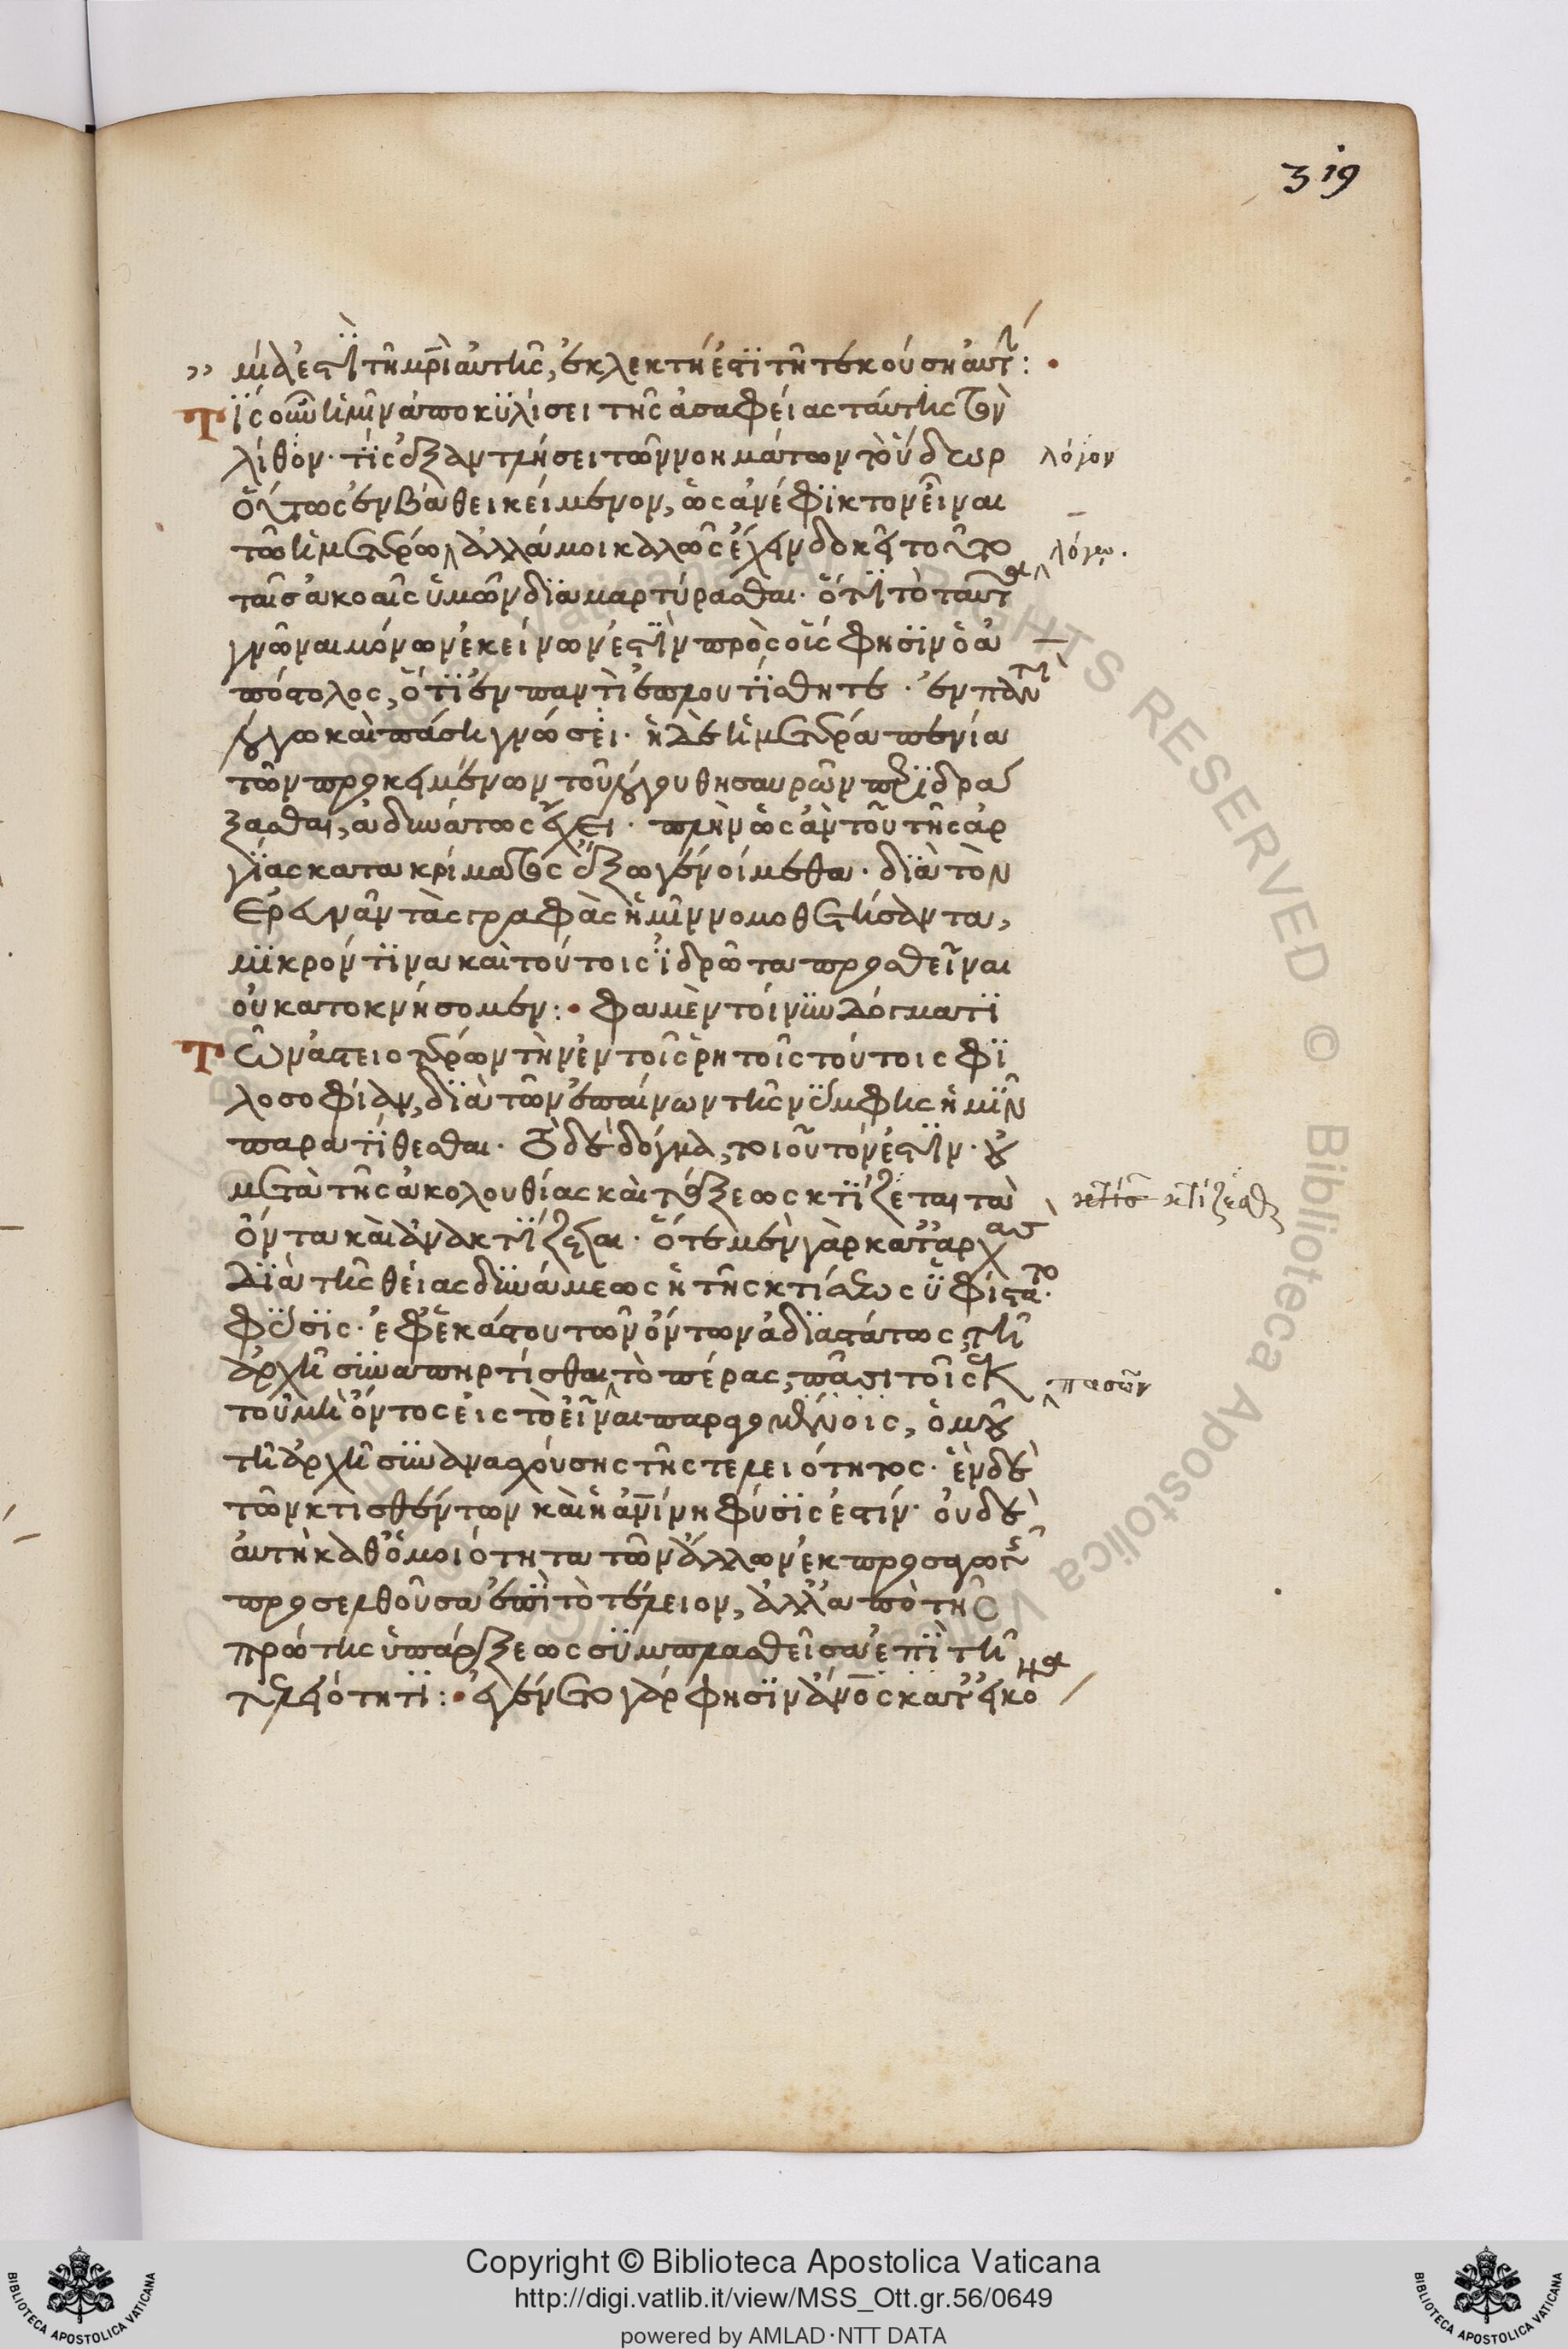 319
μία ἐστὶ τῇ μρὶ αὐτῆς, ἐκλεκτή ἐστι τῇ τεκούσῃ αὐτήν:
Τίς οὖν ἡμῖν ἀποκυλίσει τῆς ἀσαφείας ταύτης τὸν
λίθον· τίς ἐξαντλήσει τῶν νοημάτων τὸ ὕδωρ λόγον
οὕτως ἐν βάθει κείμενον, ὡς ἀνέφικτον εἶναι
τῶ ἡμετέρω ἀλλά μοι καλῶς ἔχειν δοκεῖ τοῦτο λόγω.
ταῖς ἀκοαῖς ὑμῶν διαμαρτύρασθαι· ὅτι τὸ ταῦτα
γνῶναι μόνων ἐκείνων ἐστὶν πρὸς οἵς φησὶν ὁ ἀ
πόστολος, ὅτι ἐν παντὶ ἐπλουτίσθητε· ἐν παντὶ
λόγω καὶ πάση γνώσει· ἡ δὲ ἡμετέρα πενία
τῶν προκειμένων τοῦ λόγου θησαυρῶν περιδρά
ξασθαι, ἀδυνάτως ἔχει· πλὴν ὡς ἂν τοῦ τῆς ἀρ
γίας κατακρίματος ἔξω γενοίμεθα· διὰ τὸν
ἐρευνᾶν τὰς γραφὰς ἡμῖν νομοθετήσαντα,
μικρόν τινα καὶ τούτοις ἱδρῶτα προσθεῖναι
οὐκ ἀποκνήσομεν: φαμὲν τοίνυν δόγματι
Τῶν ἀστειοτέρων τὴν ἐν τοῖς ῥητοῖς τούτοις φι
λοσοφίαν, διὰ τῶν ἐπαίνων τῆς νύμφης ἡμῖν
παρατίθεσθαι. τὸ δὲ δόγμα, τοιοῦτόν ἐστιν· οὐ
μετὰ τῆς ἀκολουθίας καὶ τάξεως κτίζεται τὰ κτίζεσθαι
ὄντα καὶ ἀνακτίζεται· ὅτε μὲν γὰρ κατ' ἀρχὰς
διὰ τῆς θείας δυνάμεως ἡ τῆς κτίσεως ὑφίστατο
φύσις· ἐφ' ἑκάστου τῶν ὄντων ἀδιαστάτως τῆ
ἀρχῆ συναπηρτίσθαι τὸ πέρας, πᾶσι τοῖς ἐκ πασῶν
τοῦ μὴ ὄντος εἰς τὸ εἶναι παραγομένοις, ὁμοῦ
τῆ ἀρχῆ συνανασχούσης τῆς τελειότητος· ἓν δὲ
τῶν κτισθέντων καὶ ἡ ἀνίνη φύσις ἐστίν· οὐδὲ
αὐτὴ καθ' ὁμοιότητα τῶν ἄλλων ἐκ
προσελθοῦσα ἐπὶ τὸ τέλειον, ἀλλ' ἀπὸ τῆς
πρώτης ὑπάρξεως συμπλασθεῖσα ἐπὶ τῆ
τελειότητι: ἐγένετο γάρ φησιν ἄνος κατ' εἰκό
Copyright © Biblioteca Apostolica Vaticana
http://digi.vatlib.it/view/MSS_Ott.gr.56/0649
powered by AMLAD·NTT DATA